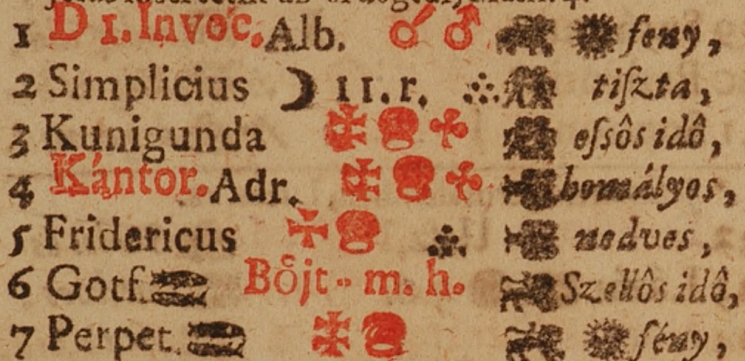 1 D 1. Invoc. Alb. feny,
2 Simplicius 11. r. tiſzta,
3 Kunigunda eſsôs idô,
4 Kántor. Adr. homályos,
5 Fridericus nedves,
6 Gotf. Bőjt-- m. h. Szellôs idô,
7 Perpet. fény,